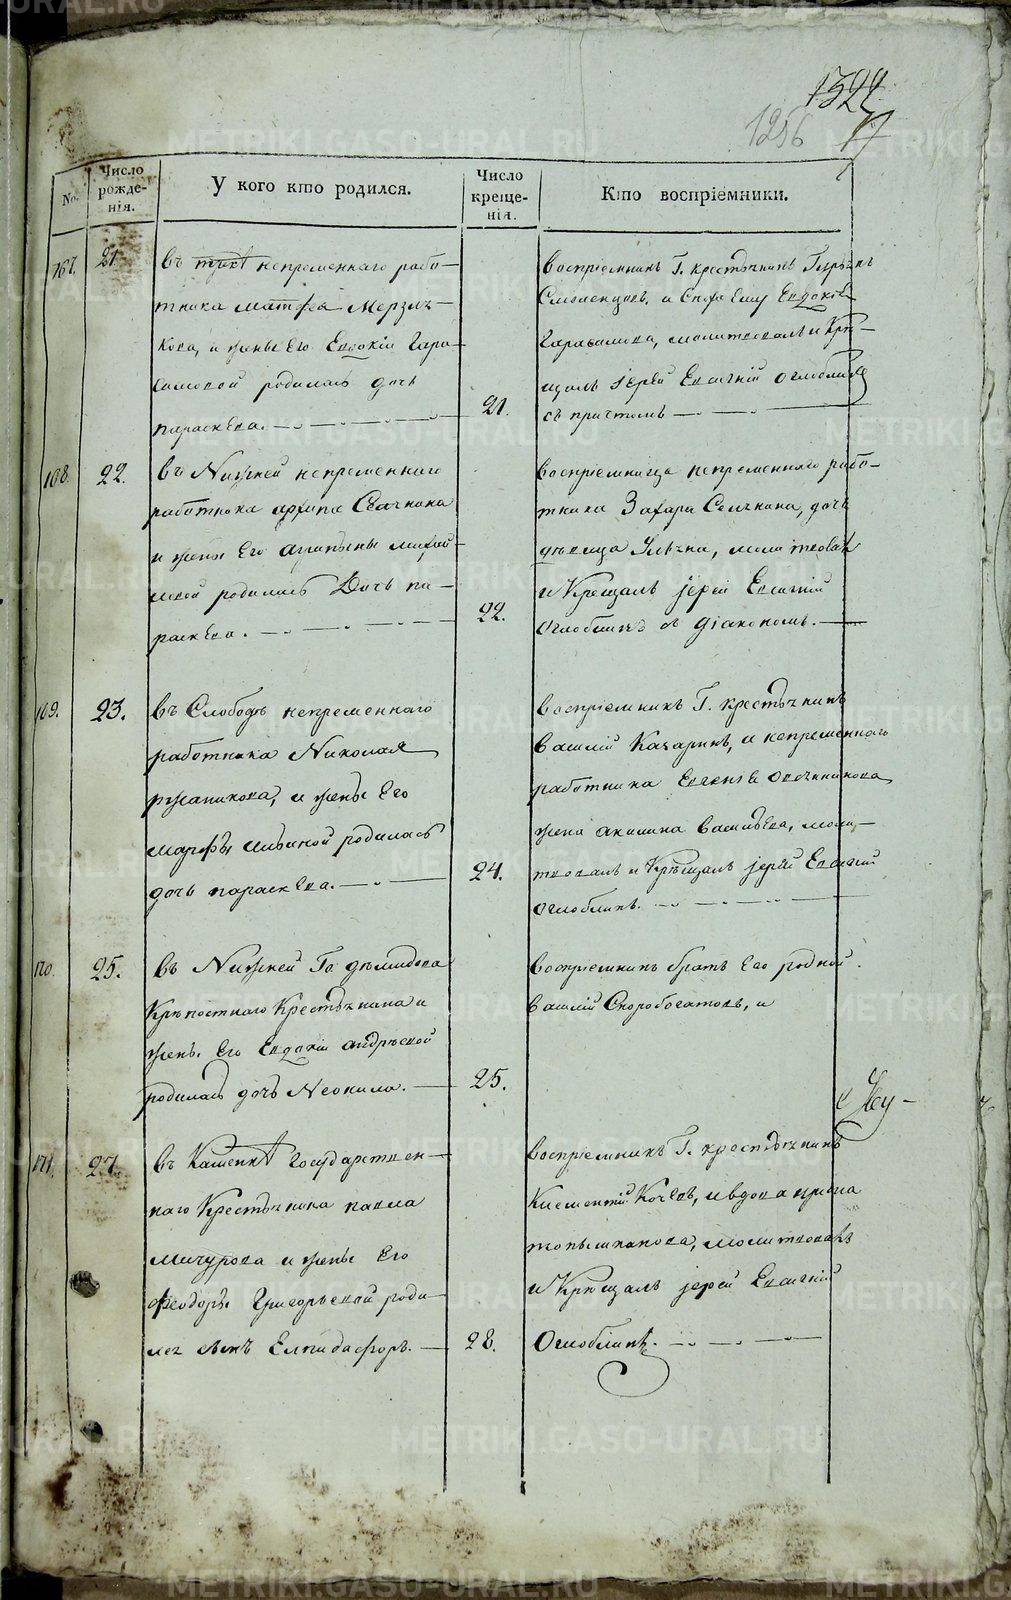 1322
1256
No.
Число рожде-
нія.
У кого кто родился.
Число креще-
нія.
Кто воспріемники.
167.
21
въ непременнаго рабо-
тника матфеа Мерзля-
кова, и жены Его Евдокіи Гара-
симовой родилась дочь
параскева.
21.
воспріемникъ Г. крестьянинъ
Смоленцовъ, и
Гарасимова, молитвовалъ и Кре-
щалъ іерей Евсигній Оглоблинъ
съ причтомъ
168.
22.
въ Нижней непременнаго
работника архипа
и жены Его агрипины михай-
ловой родилась Дочь па-
раскева.
22.
воспріемница непременнаго рабо-
тника Захара дочь
девица молитвовалъ
и Крещалъ іерей Евсигній
Оглоблинъ съ діакономъ.
169.
23.
въ Слободе непременнаго
работника Николая
ржаникова, и жены Его
марфы родилась
дочь параскева.
24.
воспріемникъ Г. крестьянинъ
василій Качаринъ, и непременнаго
работника Евгеніа Овсянникова
жена акилина васильева, моли-
твовалъ и Крещалъ іерей Евсигній
Оглоблинъ.
170.
25.
въ Нижней Го демидова
Крепостнаго Крестьянина и
жены Его Евдокіи андреевой
родилась дочь Неонила.
25.
воспріемникъ братъ Его родной
василій Скоробогатовъ, и
171.
27.
въ Каменке государствен-
наго Крестьянина павла
мичурова и жены Его
феодоры Григорьевой роди-
лся сынъ Елпидифоръ.
28.
воспріемникъ Г. крестьянинъ
Климентій Кочевъ, и вдова ирина
топышканова, молитвовалъ
и Крещалъ іерей Евсигній
Оглоблинъ.
METRIKI.GASO-URAL.RU